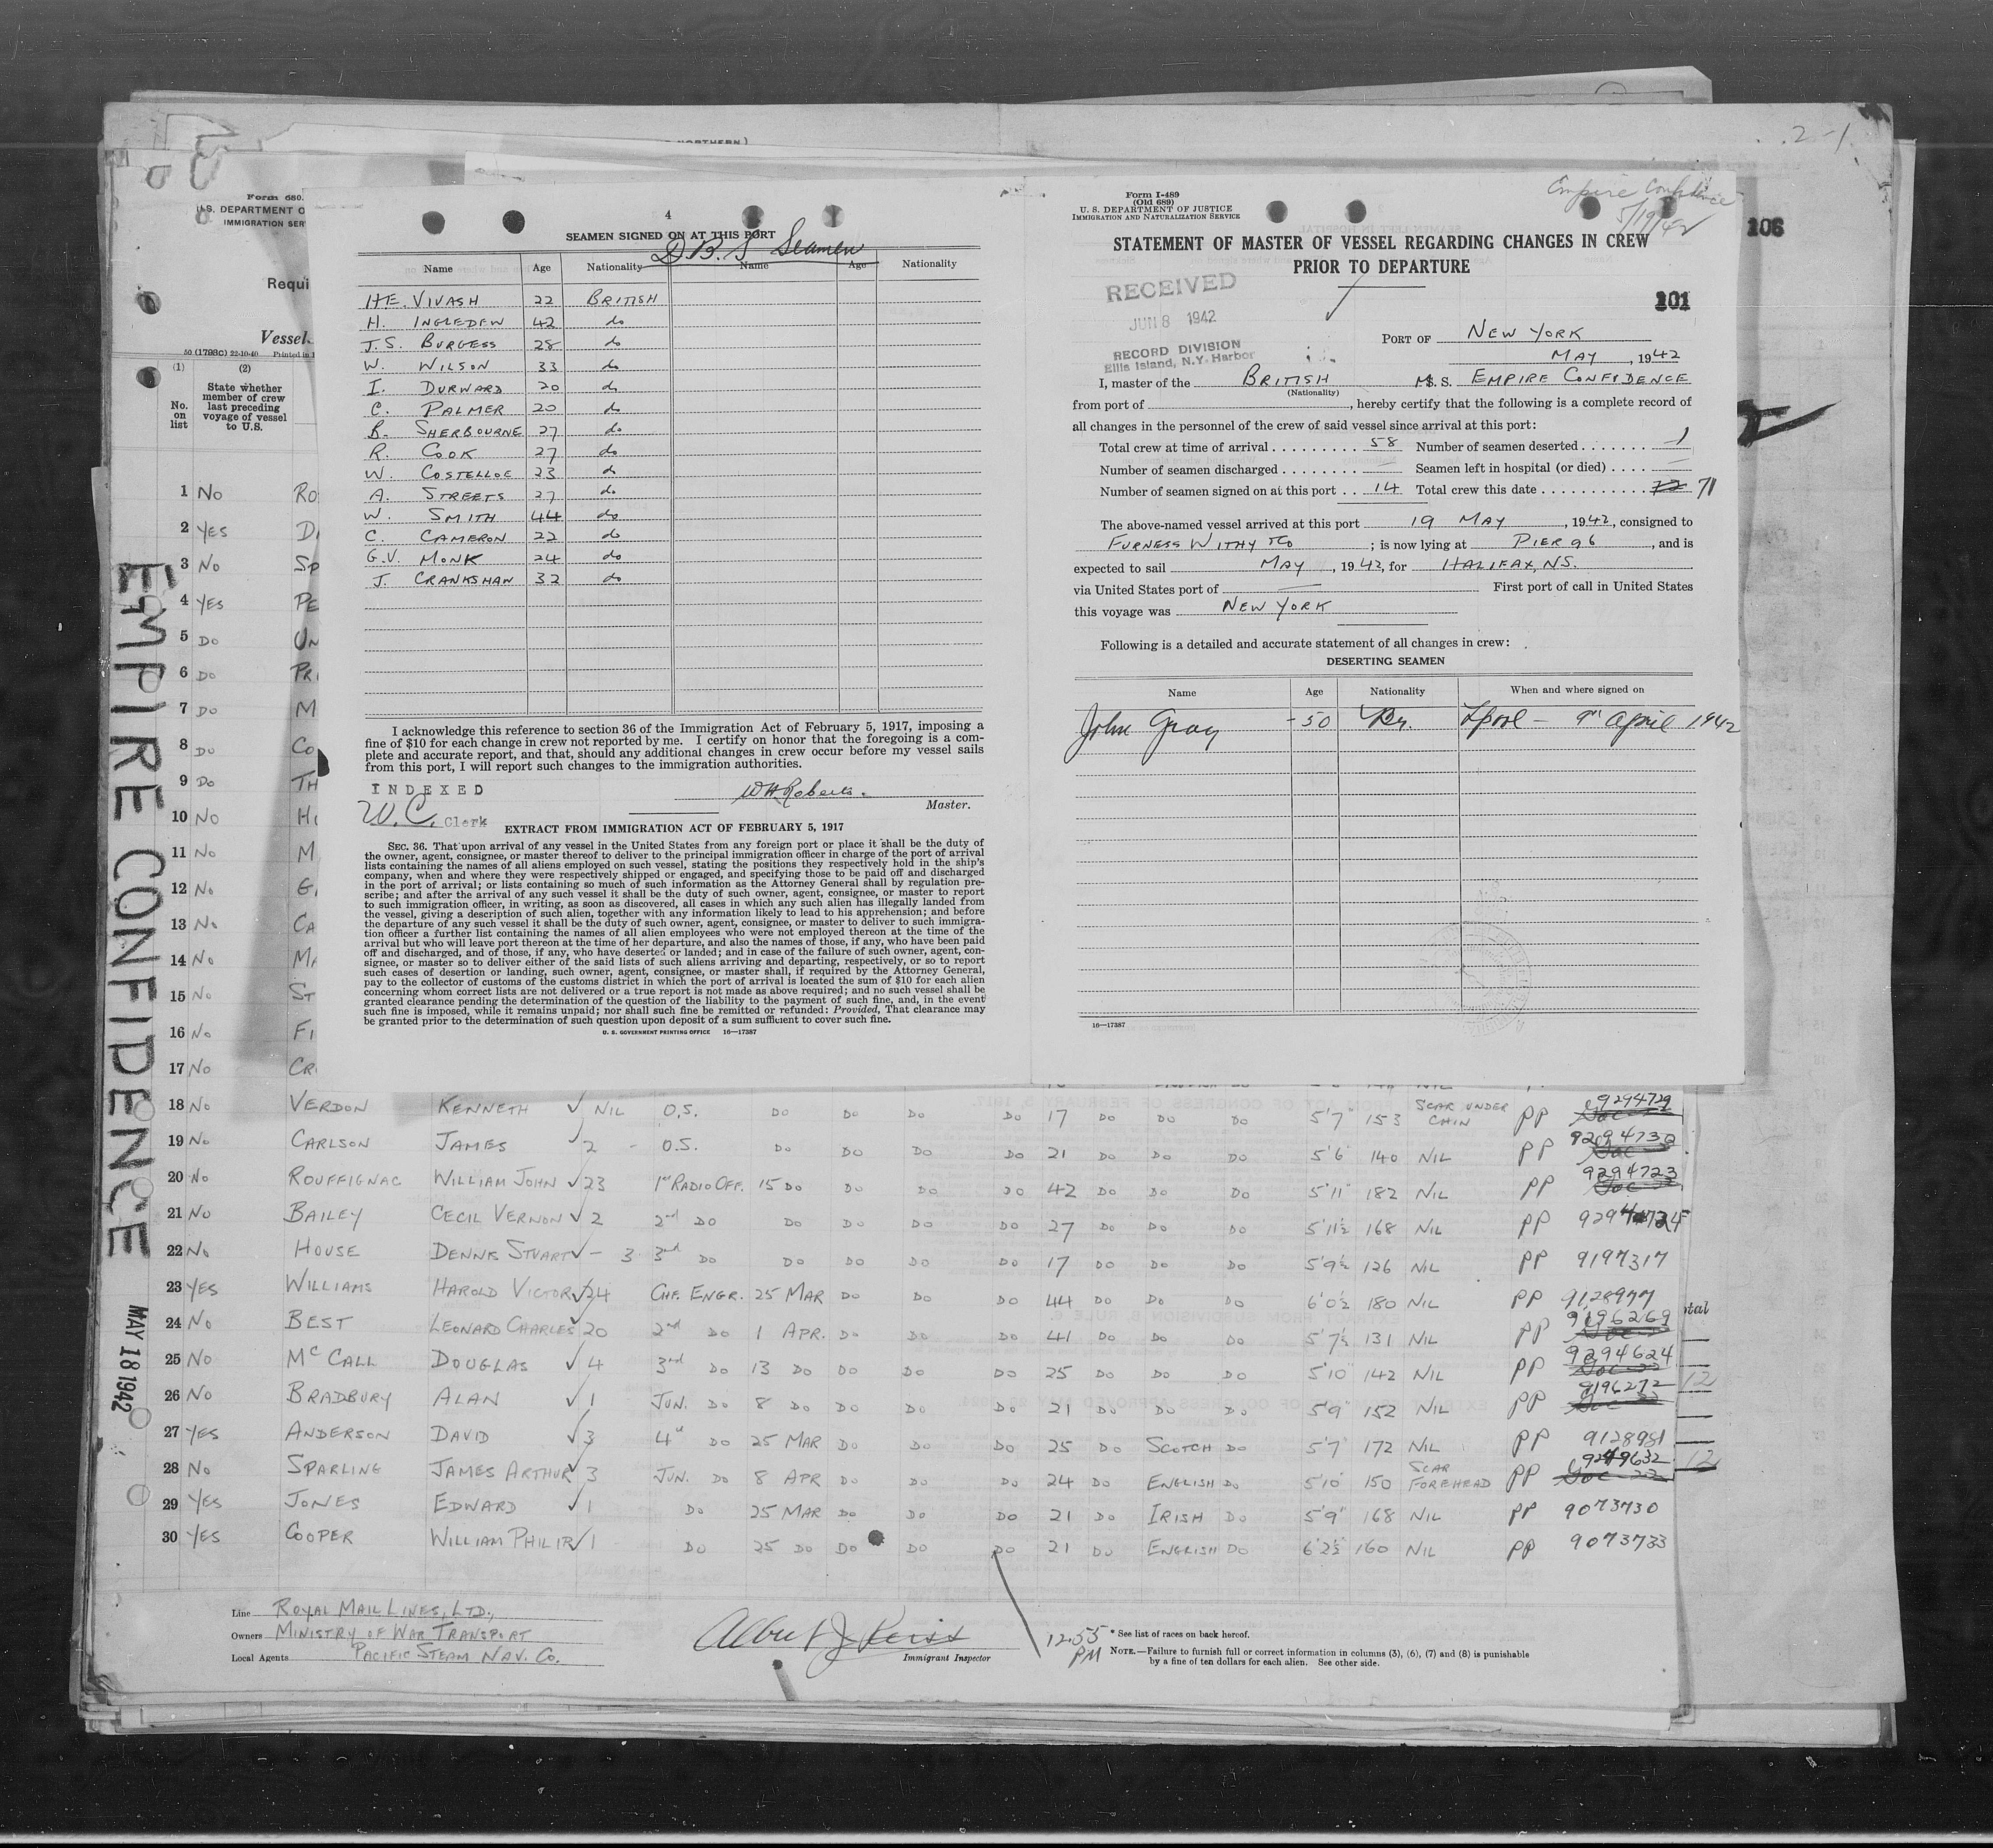 2-1
NORTHERN)
Form 680.
U.S. DEPARTMENT O
IMMIGRATION SER
Requi
Vessel
50 (1798c) 22-10-40 Printed in
(1)
No. on list
(2)
State whether member of crew last preceding voyage of vessel to U.S.
1 No RO
2 YES D
3 No SP
4 YES PE
5 DO UN
6 DO PR
7 DO M
8 DO CO
9 DO TH
10 NO H
11 NO M
12 NO G
13 No CA
14 NO MA
15 NO ST
16 NO FI
17 NO CR
EMPIRE CONFIDENCE
MAY 18 1942
4
SEAMEN SIGNED ON AT THIS PORT
D.B.S Seamen
Name Age Nationality Name Age Nationality
H.E. VIVASH 22 BRITISH
H. INGLEDEW 42 do
J.S. BURGESS 28 do
W. WILSON 33 do
I. DURWARD 20 do
C. PALMER 20 do
B. SHERBOURNE 27 do
R. COOK 27 do
W. COSTELLOE 23 do
A. STREETS 27 do
W. SMITH 44 do
C. CAMERON 22 do
G.V. MONK 24 do
J. CRANKSHAW 32 do
I acknowledge this reference to section 36 of the Immigration Act of February 5, 1917, imposing a
fine of $10 for each change in crew not reported by me. I certify on honor that the foregoing is a com-
plete and accurate report, and that, should any additional changes in crew occur before my vessel sails
from this port, I will report such changes to the immigration authorities.
INDEXED
W.C. Clerk
W H Roberts.
Master.
EXTRACT FROM IMMIGRATION ACT OF FEBRUARY 5, 1917
SEC. 36. That upon arrival of any vessel in the United States from any foreign port or place it shall be the duty of
the owner, agent, consignee, or master thereof to deliver to the principal immigration officer in charge of the port of arrival
lists containing the names of all aliens employed on such vessel, stating the positions they respectively hold in the ship's
company, when and where they were respectively shipped or engaged, and specifying those to be paid off and discharged
in the port of arrival; or lists containing so much of such information as the Attorney General shall by regulation pre-
scribe; and after the arrival of any such vessel it shall be the duty of such owner, agent, consignee, or master to report
to such immigration officer, in writing, as soon as discovered, all cases in which any such alien has illegally landed from
the vessel, giving a description of such alien, together with any information likely to lead to his apprehension; and before
the departure of any such vessel it shall be the duty of such owner, agent, consignee, or master to deliver to such immigra-
tion officer a further list containing the names of all alien employees who were not employed thereon at the time of the
arrival but who will leave port thereon at the time of her departure, and also the names of those, if any, who have been paid
off and discharged, and of those, if any, who have deserted or landed; and in case of the failure of such owner, agent, con-
signee, or master so to deliver either of the said lists of such aliens arriving and departing, respectively, or so to report
such cases of desertion or landing, such owner, agent, consignee, or master shall, if required by the Attorney General,
pay to the collector of customs of the customs district in which the port of arrival is located the sum of $10 for each alien
concerning whom correct lists are not delivered or a true report is not made as above required; and no such vessel shall be
granted clearance pending the determination of the question of the liability to the payment of such fine, and, in the event
such fine is imposed, while it remains unpaid; nor shall such fine be remitted or refunded: Provided, That clearance may
be granted prior to the determination of such question upon deposit of a sum sufficient to cover such fine.
U. S. GOVERNMENT PRINTING OFFICE 16—17387
Form I-489
(Old 689)
U. S. DEPARTMENT OF JUSTICE
IMMIGRATION AND NATURALIZATION SERVICE
Empire Confidence
5/19/42
106
STATEMENT OF MASTER OF VESSEL REGARDING CHANGES IN CREW
PRIOR TO DEPARTURE
RECEIVED
JUN 8 1942
RECORD DIVISION
Ellis Island, N.Y. Harbor
101
PORT OF NEW YORK
MAY, 1942
I, master of the BRITISH M.S. EMPIRE CONFIDENCE
(Nationality)
from port of , hereby certify that the following is a complete record of
all changes in the personnel of the crew of said vessel since arrival at this port:
Total crew at time of arrival 58 Number of seamen deserted 1
Number of seamen discharged — Seamen left in hospital (or died) —
Number of seamen signed on at this port 14 Total crew this date 72 71
The above-named vessel arrived at this port 19 MAY, 1942, consigned to
FURNESS WITHY & CO ; is now lying at PIER 96, and is
expected to sail MAY, 1942, for HALIFAX, N.S.
via United States port of — First port of call in United States
this voyage was NEW YORK
Following is a detailed and accurate statement of all changes in crew:
DESERTING SEAMEN
Name Age Nationality When and where signed on
John Gray - 50 Br. L'pool - 9th April 1942
16—17387
18 No VERDON KENNETH ✓ NIL O.S. DO DO DO DO 17 DO DO DO 5'7" 153 SCAR UNDER CHIN PP 9294729
19 No CARLSON JAMES ✓ 2 - O.S. DO DO DO DO 21 DO DO DO 5'6 140 NIL PP 9294730
20 No ROUFFIGNAC WILLIAM JOHN ✓ 23 1st RADIO OFF. 15 DO DO DO DO 42 DO DO DO 5'11" 182 NIL PP 9294723
21 No BAILEY CECIL VERNON ✓ 2 2nd DO DO DO DO DO 27 DO DO DO 5'11½ 168 NIL PP
22 No HOUSE DENNIS STUART ✓ - 3 3rd DO DO DO DO DO 17 DO DO DO 5'9½ 126 NIL PP 9197317
23 YES WILLIAMS HAROLD VICTOR ✓ 24 CHF. ENGR. 25 MAR DO DO DO 44 DO DO DO 6'0½ 180 NIL PP 9128977
24 No BEST LEONARD CHARLES ✓ 20 2nd DO 1 APR. DO DO DO 41 DO DO DO 5'7½ 131 NIL PP 9196269
25 NO McCALL DOUGLAS ✓ 4 3rd DO 13 DO DO DO DO 25 DO DO DO 5'10 142 NIL PP 9294624
26 No BRADBURY ALAN ✓ 1 JUN. DO 8 DO DO DO DO 21 DO DO DO 5'9" 152 NIL PP 9196272
27 YES ANDERSON DAVID ✓ 3 4th DO 25 MAR DO DO DO 25 DO SCOTCH DO 5'7" 172 NIL PP 9128981
28 No SPARLING JAMES ARTHUR ✓ 3 JUN. DO 8 APR DO DO DO 24 DO ENGLISH DO 5'10 150 SCAR FOREHEAD PP
29 YES JONES EDWARD ✓ 1 DO 25 MAR DO DO DO 21 DO IRISH DO 5'9" 168 NIL PP 9073730
30 YES COOPER WILLIAM PHILIP ✓ 1 DO 25 DO DO DO DO 21 DO ENGLISH DO 6'2½ 160 NIL PP 9073733
otal
12
12
Line ROYAL MAIL LINES, LTD.,
Owners MINISTRY OF WAR TRANSPORT
Local Agents PACIFIC STEAM NAV. CO.
Immigrant Inspector
12.55 PM
* See list of races on back hereof.
NOTE.—Failure to furnish full or correct information in columns (3), (6), (7) and (8) is punishable
by a fine of ten dollars for each alien. See other side.